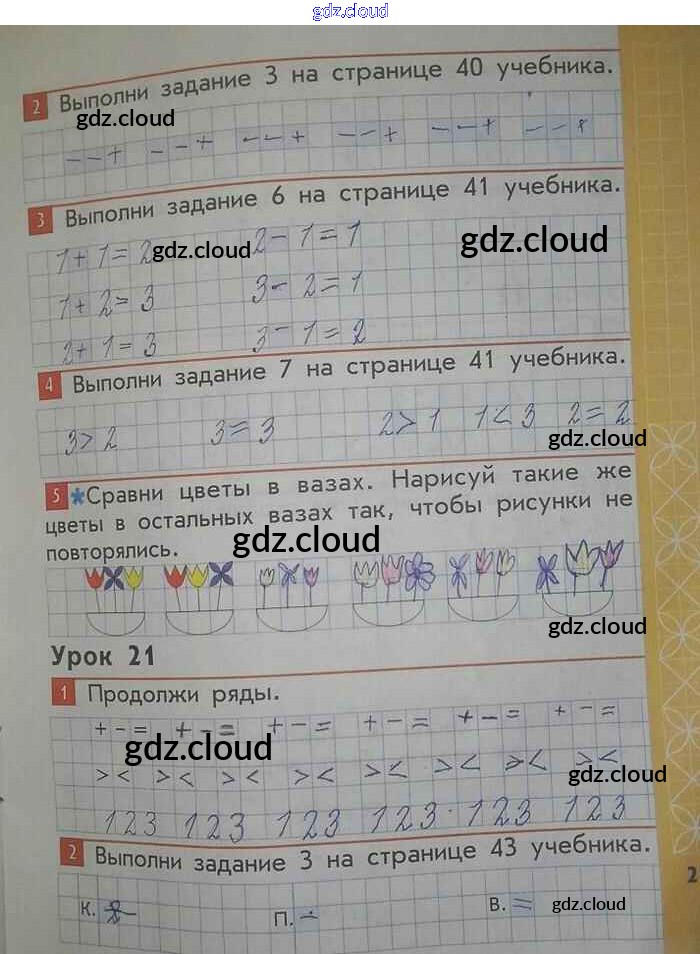 gdz.cloud
2 Выполни задание 3 на странице 40 учебника.
gdz.cloud
--+ --+ --+ --+ --+ --+
3 Выполни задание 6 на странице 41 учебника.
1+1=2 gdz.cloud 2-1=1 gdz.cloud
1+2=3 3-2=1
2+1=3 3-1=2
4 Выполни задание 7 на странице 41 учебника.
3>2 3=3 2>1 1<3 2=2
gdz.cloud
5 *Сравни цветы в вазах. Нарисуй такие же
цветы в остальных вазах так, чтобы рисунки не
повторялись. gdz.cloud
gdz.cloud
Урок 21
1 Продолжи ряды.
+-= +-= +-= +-= +-= +-=
gdz.cloud
>< >< >< >< >< >< >< ><
gdz.cloud
123 123 123 123 123 123
2 Выполни задание 3 на странице 43 учебника.
2
К. П. ÷ В. = gdz.cloud